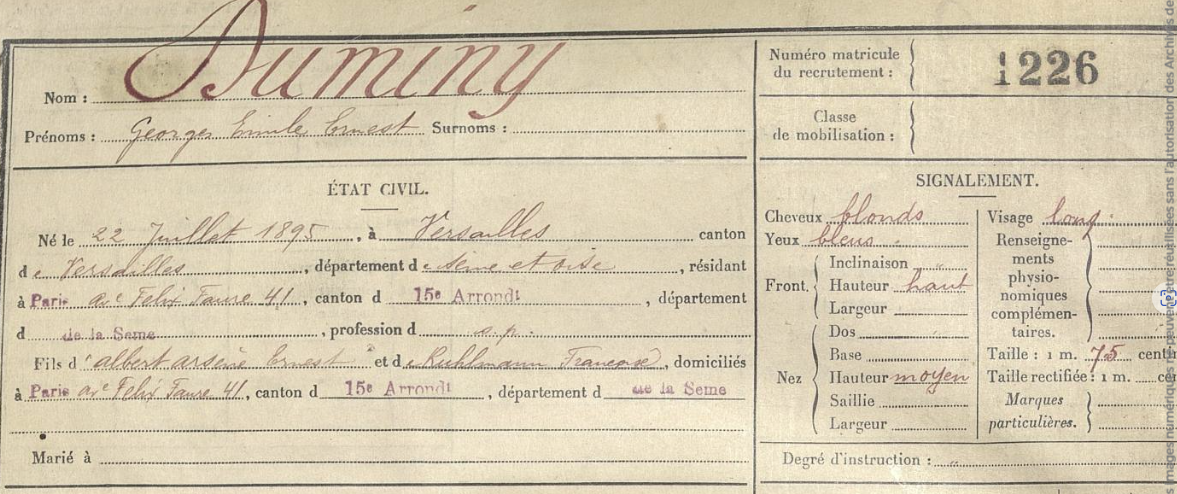 Nom : Duminy
Prénoms : Georges Emile Ernest Surnoms :
Numéro matricule
du recrutement :
1226
Classe
de mobilisation :
ÉTAT CIVIL.
Né le 22 Juillet 1895, à Versailles canton
de Versailles, département de Seine et Oise, résidant
à Paris ave Felix Faure 41, canton d 15e Arrondt, département
d de la Seine, profession d s.p.
Fils d'albert arsène Ernest et de Ruhlmann Françoise, domiciliés
à Paris ave Felix Faure 41, canton d 15e Arrondt, département d de la Seine
Marié à
SIGNALEMENT.
Cheveux blonds
Yeux bleus.
Front.
Inclinaison
Hauteur haut
Largeur
Nez
Dos
Base
Hauteur moyen
Saillie
Largeur
Visage long.
Renseigne-
ments
physio-
nomiques
complémen-
taires.
Taille : 1 m. 75 centi
Taille rectifiée : 1 m. cen
Marques
particulières.
Degré d'instruction :
images numériques ne peuvent être réutilisées sans l'autorisation des Archives de